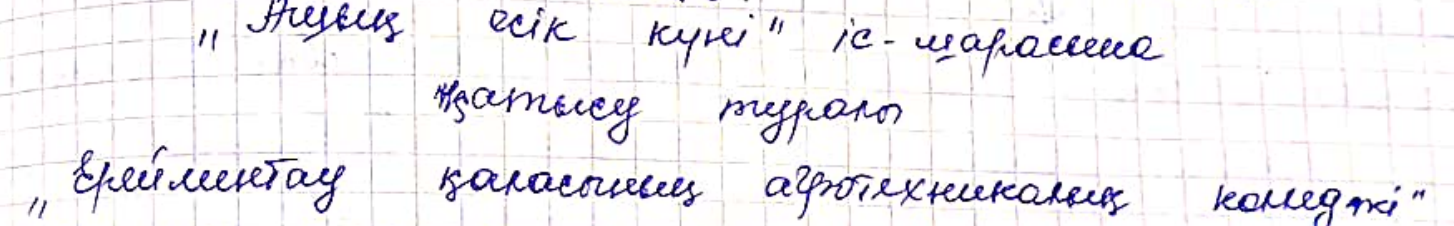 "Ашық есік күні" іс-шарасына
қатысу туралы
"Ерейментау қаласының агротехникалық колледжі"